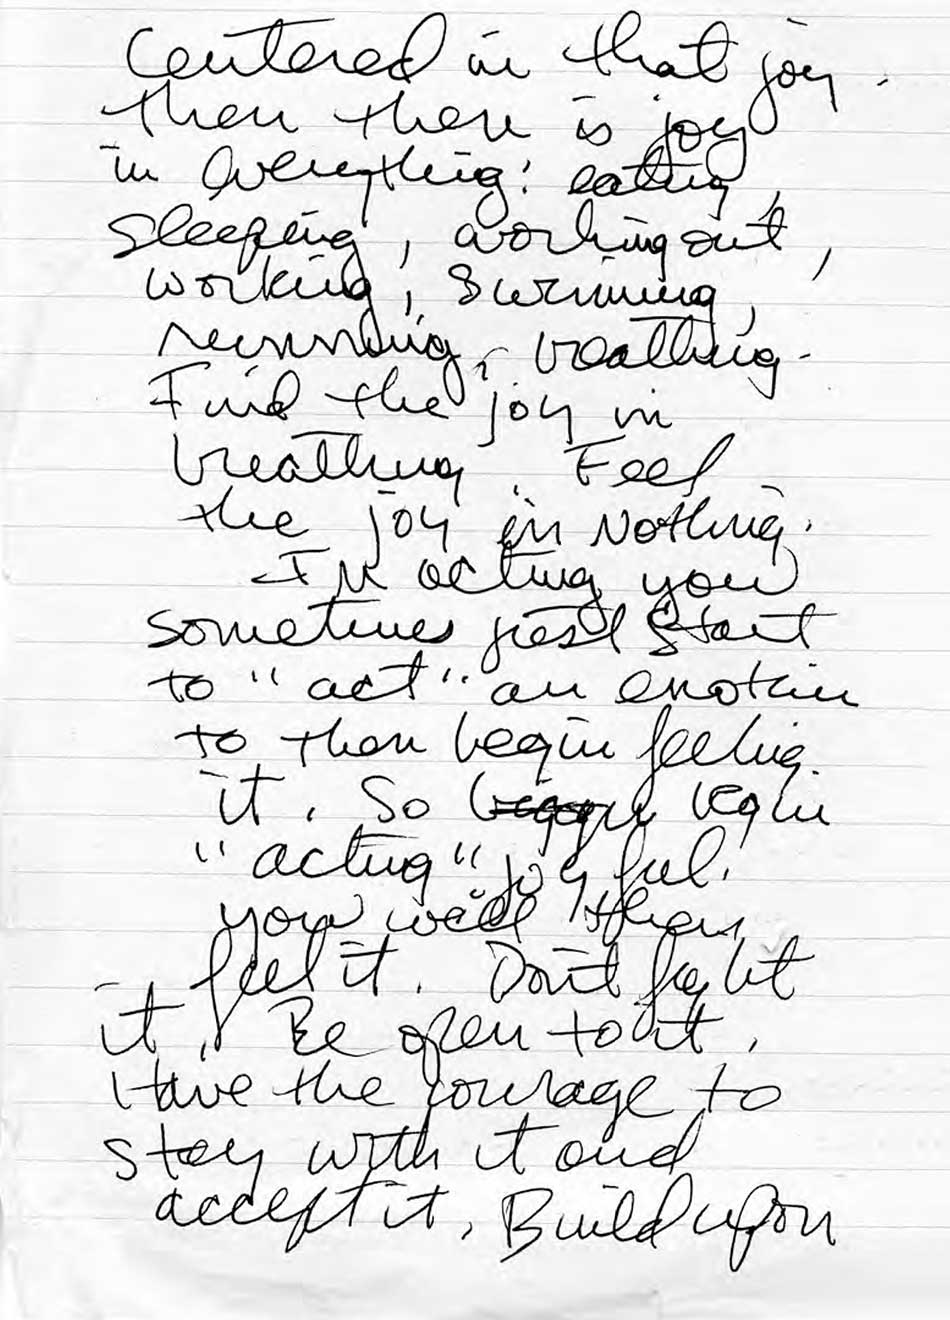 Centered in that joy.
then there is joy
in everything: eating,
sleeping, working out,
working, swimming,
running, breathing.
Find the joy in
breathing. Feel
the joy in nothing.
In acting you
sometimes just start
to "act" an emotion
to then begin feeling
it. So begin
"acting" joyful.
you will then
feel it. Don't fight
it. Be open to it.
Have the courage to
stay with it and
accept it. Build upon